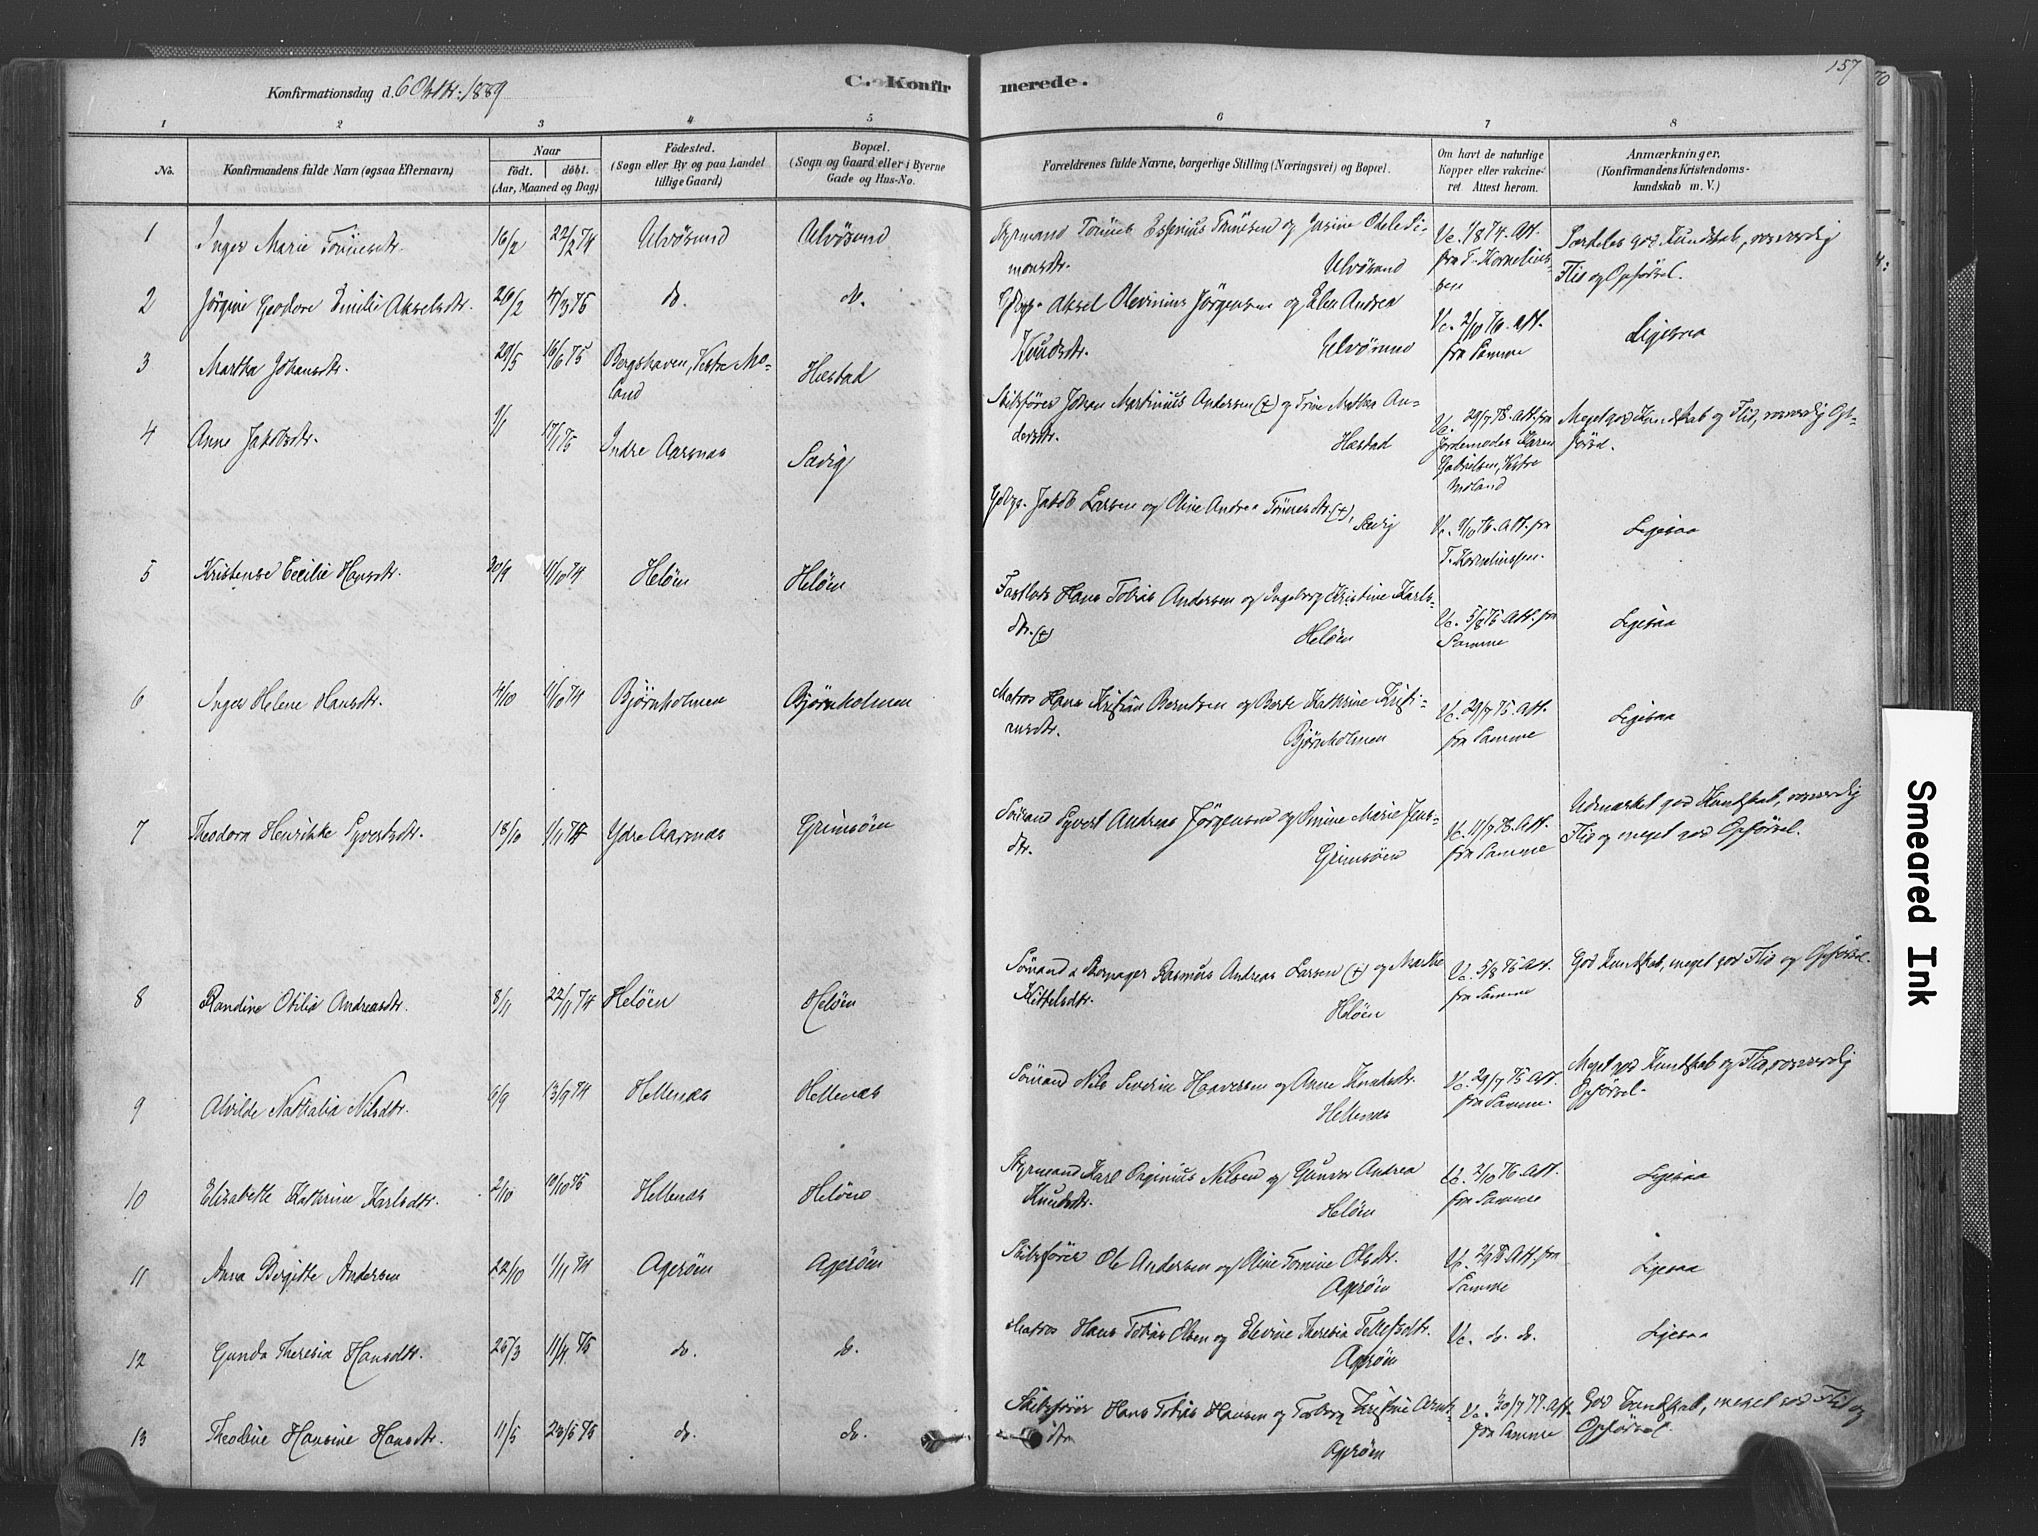 157
Konfirmationsdag d. 6 Oktbr: 1889
C. Konfirmerede.
1 2 3 4 5 6 7 8
No.
Konfirmandens fulde Navn (ogsaa Efternavn)
Naar
født. døbt.
(Aar, Maaned og Dag)
Fødested.
(Sogn eller By og paa Landet
tillige Gaard)
Bopæl.
(Sogn og Gaard eller i Byerne
Gade og Hus-No.
Forældrenes fulde Navne, borgerlige Stilling (Næringsvei) og Bopæl.
Om havt de naturlige
Kopper eller vakcine-
ret Attest herom.
Anmærkninger.
(Konfirmandens Kristendoms-
kundskab m. V.)
1 Inger Marie Tønnesdtr. 16/2 22/2 74 Ulvøsund Ulvøsund
Styrmand Tønnes Tønnesen og Josine Odele Si-
monsdtr. Ulvøsund
Vc. 1/8 74. Att.
fra T. Kornelius-
sen
Særdeles god Kundskab, rosværdig
Flid og Opførsel.
2 Jørgine Teodore Emilie Akselsdtr. 26/2 4/3 75 do. do.
Aksel Olevinius Jørgensen og Elen Andrea
Knudsdtr. Ulvøsund
Vc. 2/10 76. Att.
fra Samme
Ligesaa
3 Martha Johansdtr. 29/5 16/6 75 Bergshaven, Vestre Mo-
land Hæstad
Skibsfører Johan Martinius Andersen (+) og Trine Mathea An-
dersdtr. Hæstad
Vc. 29/7 78. Att. fra
Jordemoder Karen
Gabrielsen, Vestre
Moland
Meget god Kundskab og Flid, rosværdig Op-
førsel.
4 Anne Jakobsdtr. 9/1 17/1 75 Indre Aarsnæs Sævig
Jakob Larsen og Oline Andrea Tønnesdtr. (+), Sævig
Vc. 9/10 76. Att. fra
T. Korneliussen.
Ligesaa
5 Kristense Cecilie Hansdtr. 30/9 11/10 74 Heløen Heløen
Hans Tobias Andersen og Ingeborg Kristine Karls-
dtr. (+) Heløen
Vc. 5/8 75 Att. fra
Samme
Ligesaa
6 Inger Helene Hansdtr. 4/10 11/10 74 Bjørnholmen Bjørnholmen
Matros Hans Kristian Berntsen og Berte Kathrine Kristi-
ansdtr. Bjørnholmen
Vc. 29/7 75. Att.
fra Samme
Ligesaa
7 Theodora Henrikke Syvertsdtr. 18/10 1/11 74 Ydre Aarsnæs Grimsøen
Sømand Syvert Andreas Jørgensen og Amine Marie Jens-
dtr. Grimsøen
Vc. 11/7 78. Att.
fra Samme
Udmærket god Kundskab, rosværdig
Flid og meget god Opførsel.
8 Randine Otilia Andreasdtr. 8/11 22/11 74 Heløen Heløen
Sømand Rasmus Andreas Larsen (+) og Marthe
Kittelsdtr. Heløen
Vc. 5/8 75 Att.
fra Samme
God Kundskab, meget god Flid og Opførsel.
9 Alvilde Nathalia Nilsdtr. 6/9 13/9 74 Hellenæs Hellenæs
Sømand Nils Severin Haaversen og Anne Knudsdtr.
Hellenæs
Vc. 29/7 75 Att.
fra Samme.
Meget god Kundskab og Flid, rosværdig
Opførsel.
10 Elisabette Kathrine Karlsdtr. 2/10 10/10 75 Hellenæs Heløen
Styrmand Karl Nilsen og Gunvor Andrea
Knudsdtr. Heløen
Vc. 2/10 76 Att.
fra Samme
Ligesaa
11 Anna Bergitte Andersen 22/10 1/11 74 Agerøen Agerøen
Skibsfører Ole Andersen og Oline Tomine Olsdtr.
Agerøen
Vc. Att. fra
Samme
Ligesaa
12 Gunda Theresia Hansdtr. 25/3 11/4 75 do. do.
Matros Hans Tobias Olsen og Elevine Theresia Tellefsdtr.
Agerøen
Vc. do. do.
Ligesaa
13 Theoline Hansine Hansdtr. 11/5 23/5 75 do. do.
Skibsfører Hans Tobias Hansen og Torborg Kristine Arnt-
dtr. Agerøen
Vc. 20/7 77. Att.
fra Samme
God Kundskab, meget god Flid og
Opførsel.
Smeared Ink